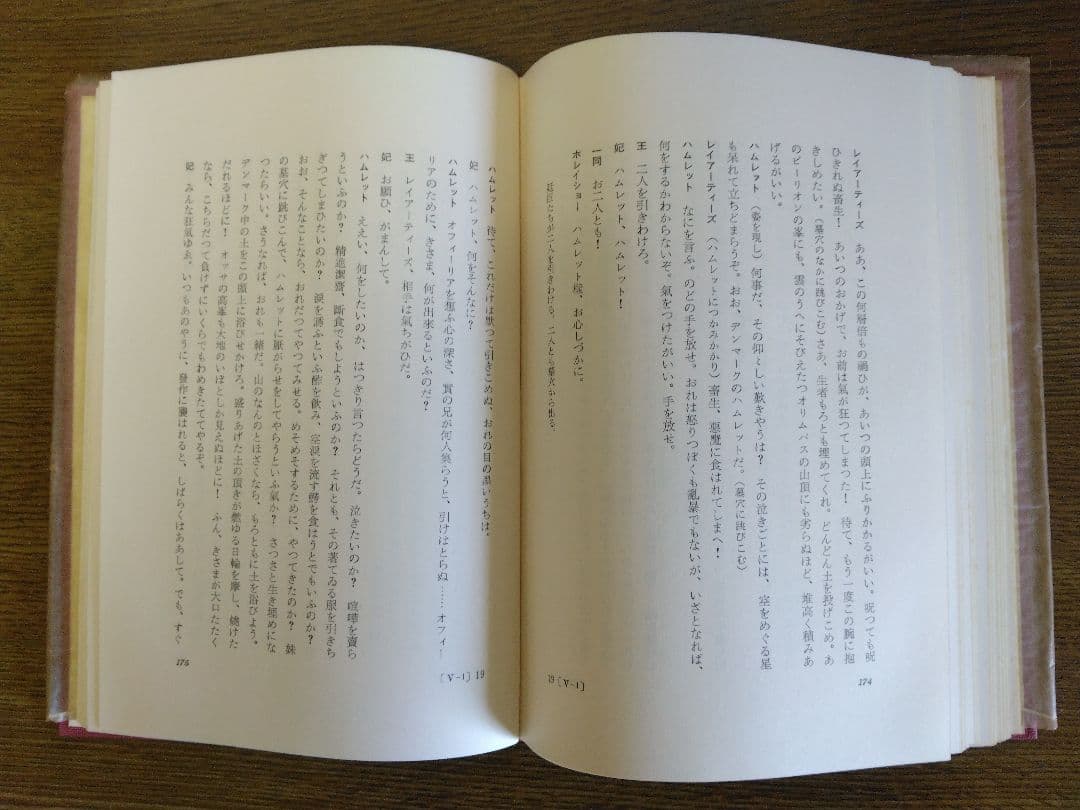 レイアーティーズ　ああ、この何層倍もの禍ひが、あいつの頭上にふりかかるがいい。呪つても呪
ひきれぬ畜生！　あいつのおかげで、お前は氣が狂つてしまつた！　待て、もう一度この腕に抱
きしめたい。（墓穴のなかに跳びこむ）さあ、生者もろとも埋めてくれ。どんどん土を投げこめ。あ
のピーリオンの峯にも、雲のうへにそびえたつオリムパスの山頂にも劣らぬほど、堆高く積みあ
げるがいい。
ハムレット　（姿を現し）何事だ、その仰々しい歎きやうは？　その泣きごとには、空をめぐる星
も呆れて立ちどまらうぞ。おお、デンマークのハムレットだ。（墓穴に跳びこむ）
レイアーティーズ　（ハムレットにつかみかかり）畜生、惡魔に食はれてしまへ！
ハムレット　なにを言ふ。のどの手を放せ。おれは怒りつぽくも亂暴でもないが、いざとなれば、
何をするかわからないぞ。氣をつけたがいい。手を放せ。
王　二人を引きわけろ。
妃　ハムレット、ハムレット！
一同　お二人とも！
ホレイショー　ハムレット樣、お心しづかに。
廷臣たちが二人を引きわける、二人とも墓穴から出る。
19〔V-1〕
174
ハムレット　待て、これだけは默つて引きこめぬ、おれの目の黑いうちは。
妃　ハムレット、何をそんなに？
ハムレット　オフィーリアを想ふ心の深さ、實の兄が何人集らうと、引けはとらぬ……オフィー
リアのために、きさま、何が出來るといふのだ？
王　レイアーティーズ、相手は氣ちがひだ。
妃　お願ひ、がまんして。
ハムレット　ええい、何をしたいのか、はつきり言つたらどうだ。泣きたいのか？　喧嘩を賣ら
うといふのか？　精進潔齋、斷食でもしようといふのか？　それとも、その著てゐる服を引きち
ぎつてしまひたいのか？　淚を誘ふといふ酢を飮み、空淚を流す鰐を食はうとでもいふのか？
おお、そんなことなら、おれだつてやつてみせる。めそめそするために、やつてきたのか？　妹
の墓穴に跳びこんで、ハムレットに厭がらせをしてやらうといふ氣か？　さつさと生き埋めにな
つたらいい。さうなれば、おれも一緒だ。山のなんのとほざくなら、もろともに土を浴びよう。
デンマーク中の土をこの頭上に浴びせかけろ。盛りあげた土の頂きが燃ゆる日輪を摩し、燒けた
だれるほどに！　オッサの高峯も大地のいぼとしか見えぬほどに！　ふん、きさまが大口たたく
なら、こちらだつて負けずにいくらでもわめきたててやるぞ。
妃　みんな狂氣ゆゑ。いつもあのやうに、發作に襲はれると、しばらくはああして。でも、すぐ
〔V-1〕19
175